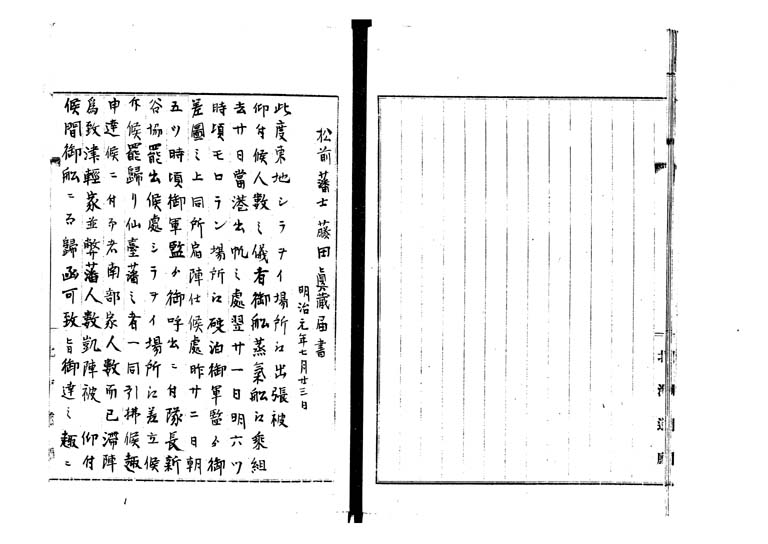 松前藩士藤田眞蔵届書
明治元年七月廿三日
此度東地シラヲイ場所江出張被
仰付候人数之儀者御舩蒸氣舩江乗組
去廿日當港出帆之處翌廿一日明六ツ
時頃モロラン場所江碇泊御軍監ゟ御
差圖之上同所扃陣仕候處昨廿二日朝
五ツ時頃御軍監ゟ御呼出ニ付隊長新
谷協罷出候處シラヲイ場所江差立候
斥候罷歸リ仙臺藩之者一同引拂候趣
申達候ニ付而者南部家人数而已滞陣
為致津輕家並弊藩人数凱陣被仰付
候間御舩ニ而歸函可致旨御達之趣ニ
北海道廳
1